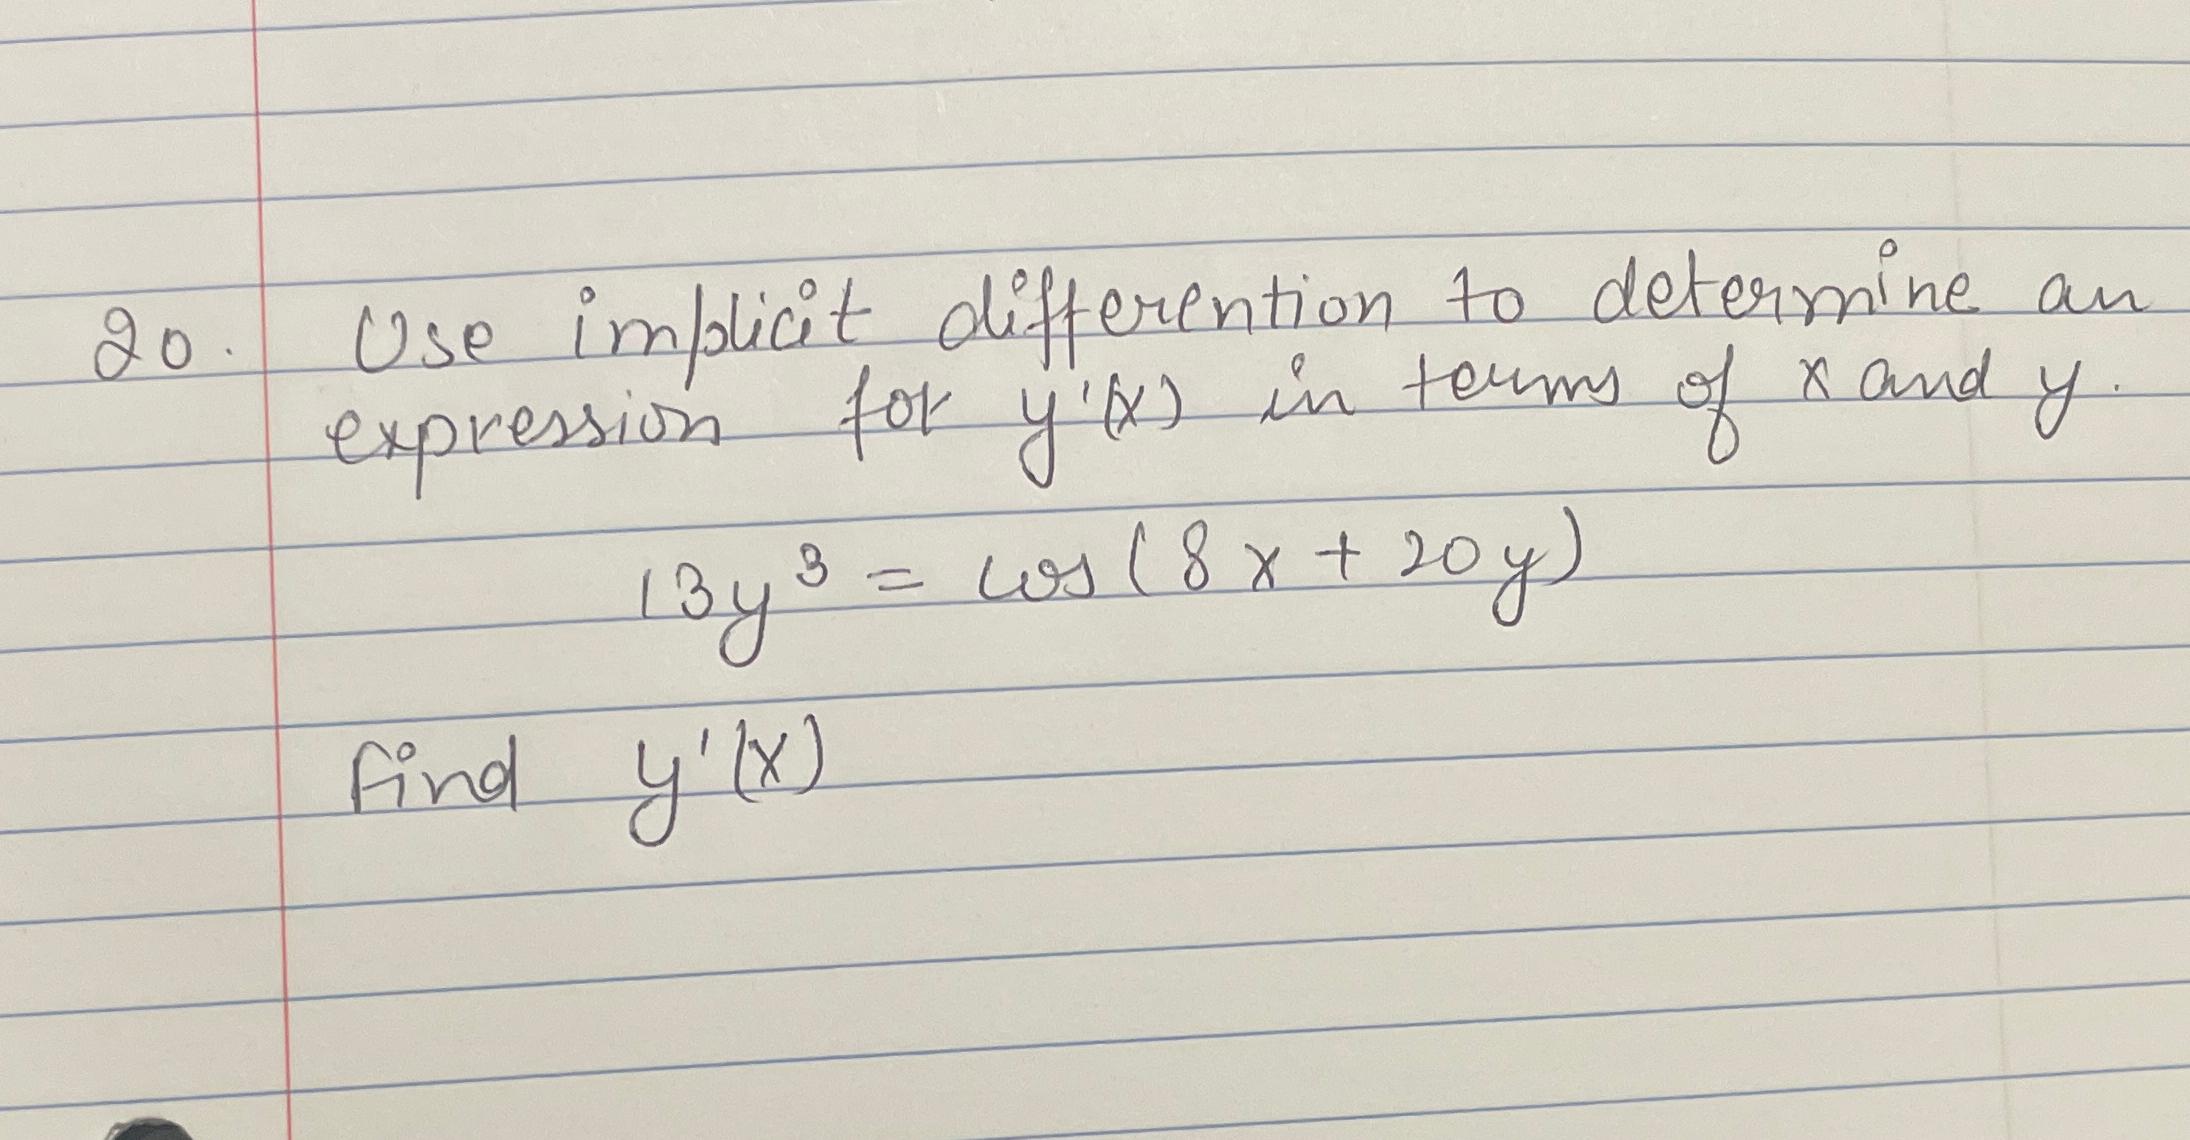 20. Use implicit differention to determine an
expression for y'(x) in terms of x and y.
13y³ = cos(8x + 20y)
find y'(x)